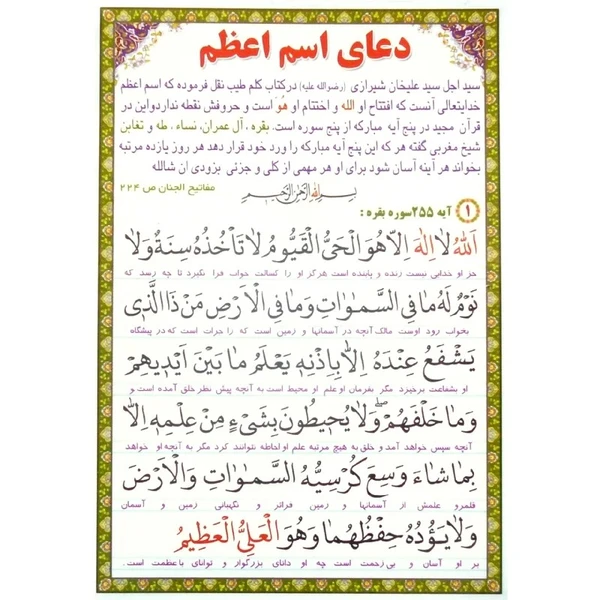 دعای اسم اعظم
سید اجل سید علیخان شیرازی (رضوالله علیه) درکتاب کلم طیب نقل فرموده که اسم اعظم
خدایتعالی آنست که افتتاح او الله و اختتام او هُوَ است و حروفش نقطه نداردواین در
قرآن مجید در پنج آیه مبارکه از پنج سوره است. بقره ، آل عمران، نساء، طه و تغابن
شیخ مغربی گفته هر که این پنج آیه مبارکه را ورد خود قرار دهد هر روز یازده مرتبه
بخواند هر آینه آسان شود برای او هر مهمی از کلی و جزئی بزودی ان شالله
مفاتیح الجنان ص ۲۲۴
بِسْمِ اللهِ الرَّحْمٰنِ الرَّحيمِ
۱ آیه ۲۵۵ سوره بقره :
اَللهُ لا اِلهَ اِلّا هُوَ الْحَیُّ الْقَیُّومُ لا تَأْخُذُهُ سِنَةٌ وَلا
جز او خدایی نیست زنده و پاینده است هرگز او را کسالت خواب فرا نگیرد تا چه رسد که
نَوْمٌ لَهُ ما فِی السَّمٰواتِ وَما فِی الْاَرْضِ مَنْ ذَا الَّذی
بخواب رود اوست مالک آنچه در آسمانها و زمین است که را جرات است که در پیشگاه
یَشْفَعُ عِنْدَهُ اِلّا بِاِذْنِهِ یَعْلَمُ ما بَیْنَ اَیْدیهِمْ
او بشفاعت برخیزد مگر بفرمان او علم او محیط است به آنچه پیش نظر خلق آمده است و
وَما خَلْفَهُمْ وَلا یُحیطُونَ بِشَیْءٍ مِنْ عِلْمِهِ اِلّا
آنچه سپس خواهد آمد و خلق به هیچ مرتبه علم او احاطه نتوانند کرد مگر به آنچه او خواهد
بِما شاءَ وَسِعَ کُرْسِیُّهُ السَّمٰواتِ وَالْاَرْضَ
قلمرو علمش از آسمانها و زمین فراتر و نگهبانی زمین و آسمان
وَلا یَؤُدُهُ حِفْظُهُما وَهُوَ الْعَلِیُّ الْعَظیمُ
بر او آسان و بی زحمت است چه او دانای بزرگوار و توانای با عظمت است .